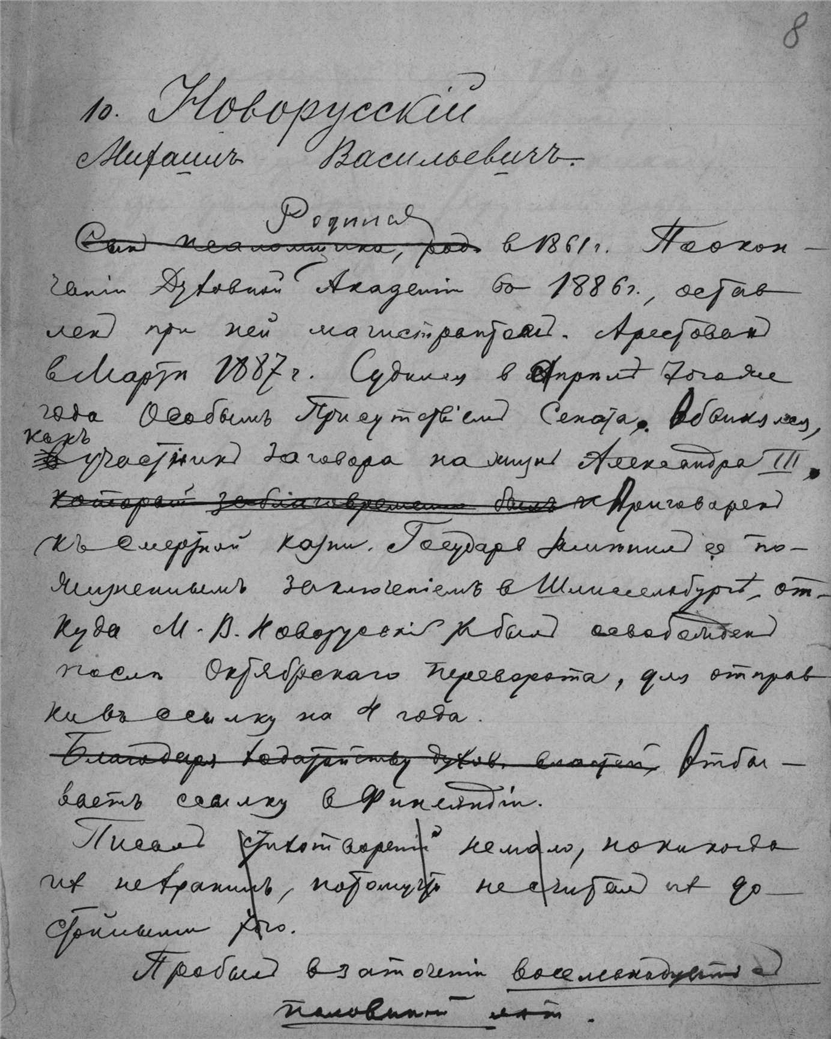 8
10. Новорусскій
Михаилъ Васильевичъ.
Родился
Сын псаломщика, род. в 1861 г. По окон-
чаніи Духовной Академіи во 1886 г., остав
лен при ней магистрантом. Арестован
в Мартѣ 1887 г. Судился в Апрѣлѣ того же
года Особымъ Присутствіем Сената. Обвинялся,
какъ
участник заговора на жизнь Александра III.
который заблаговременно былъ и Приговорен
къ смертной казни. Государь замѣнил ее по-
жизненнымъ заключеніемъ в Шлиссельбург, от-
куда М. В. Новорусскій был освобожден
послѣ Октябрьскаго переворота, для отправ
ки въ ссылку на 4 года.
Благодаря ходатайству духов. властей, Отбы-
ваетъ ссылку в Финляндіи.
Писал стихотвореній немало, но никогда
их не хранилъ, потому что не считал их до-
стойными того.
Пробыл в заточеніи восемнадцать с
половиной лѣт.